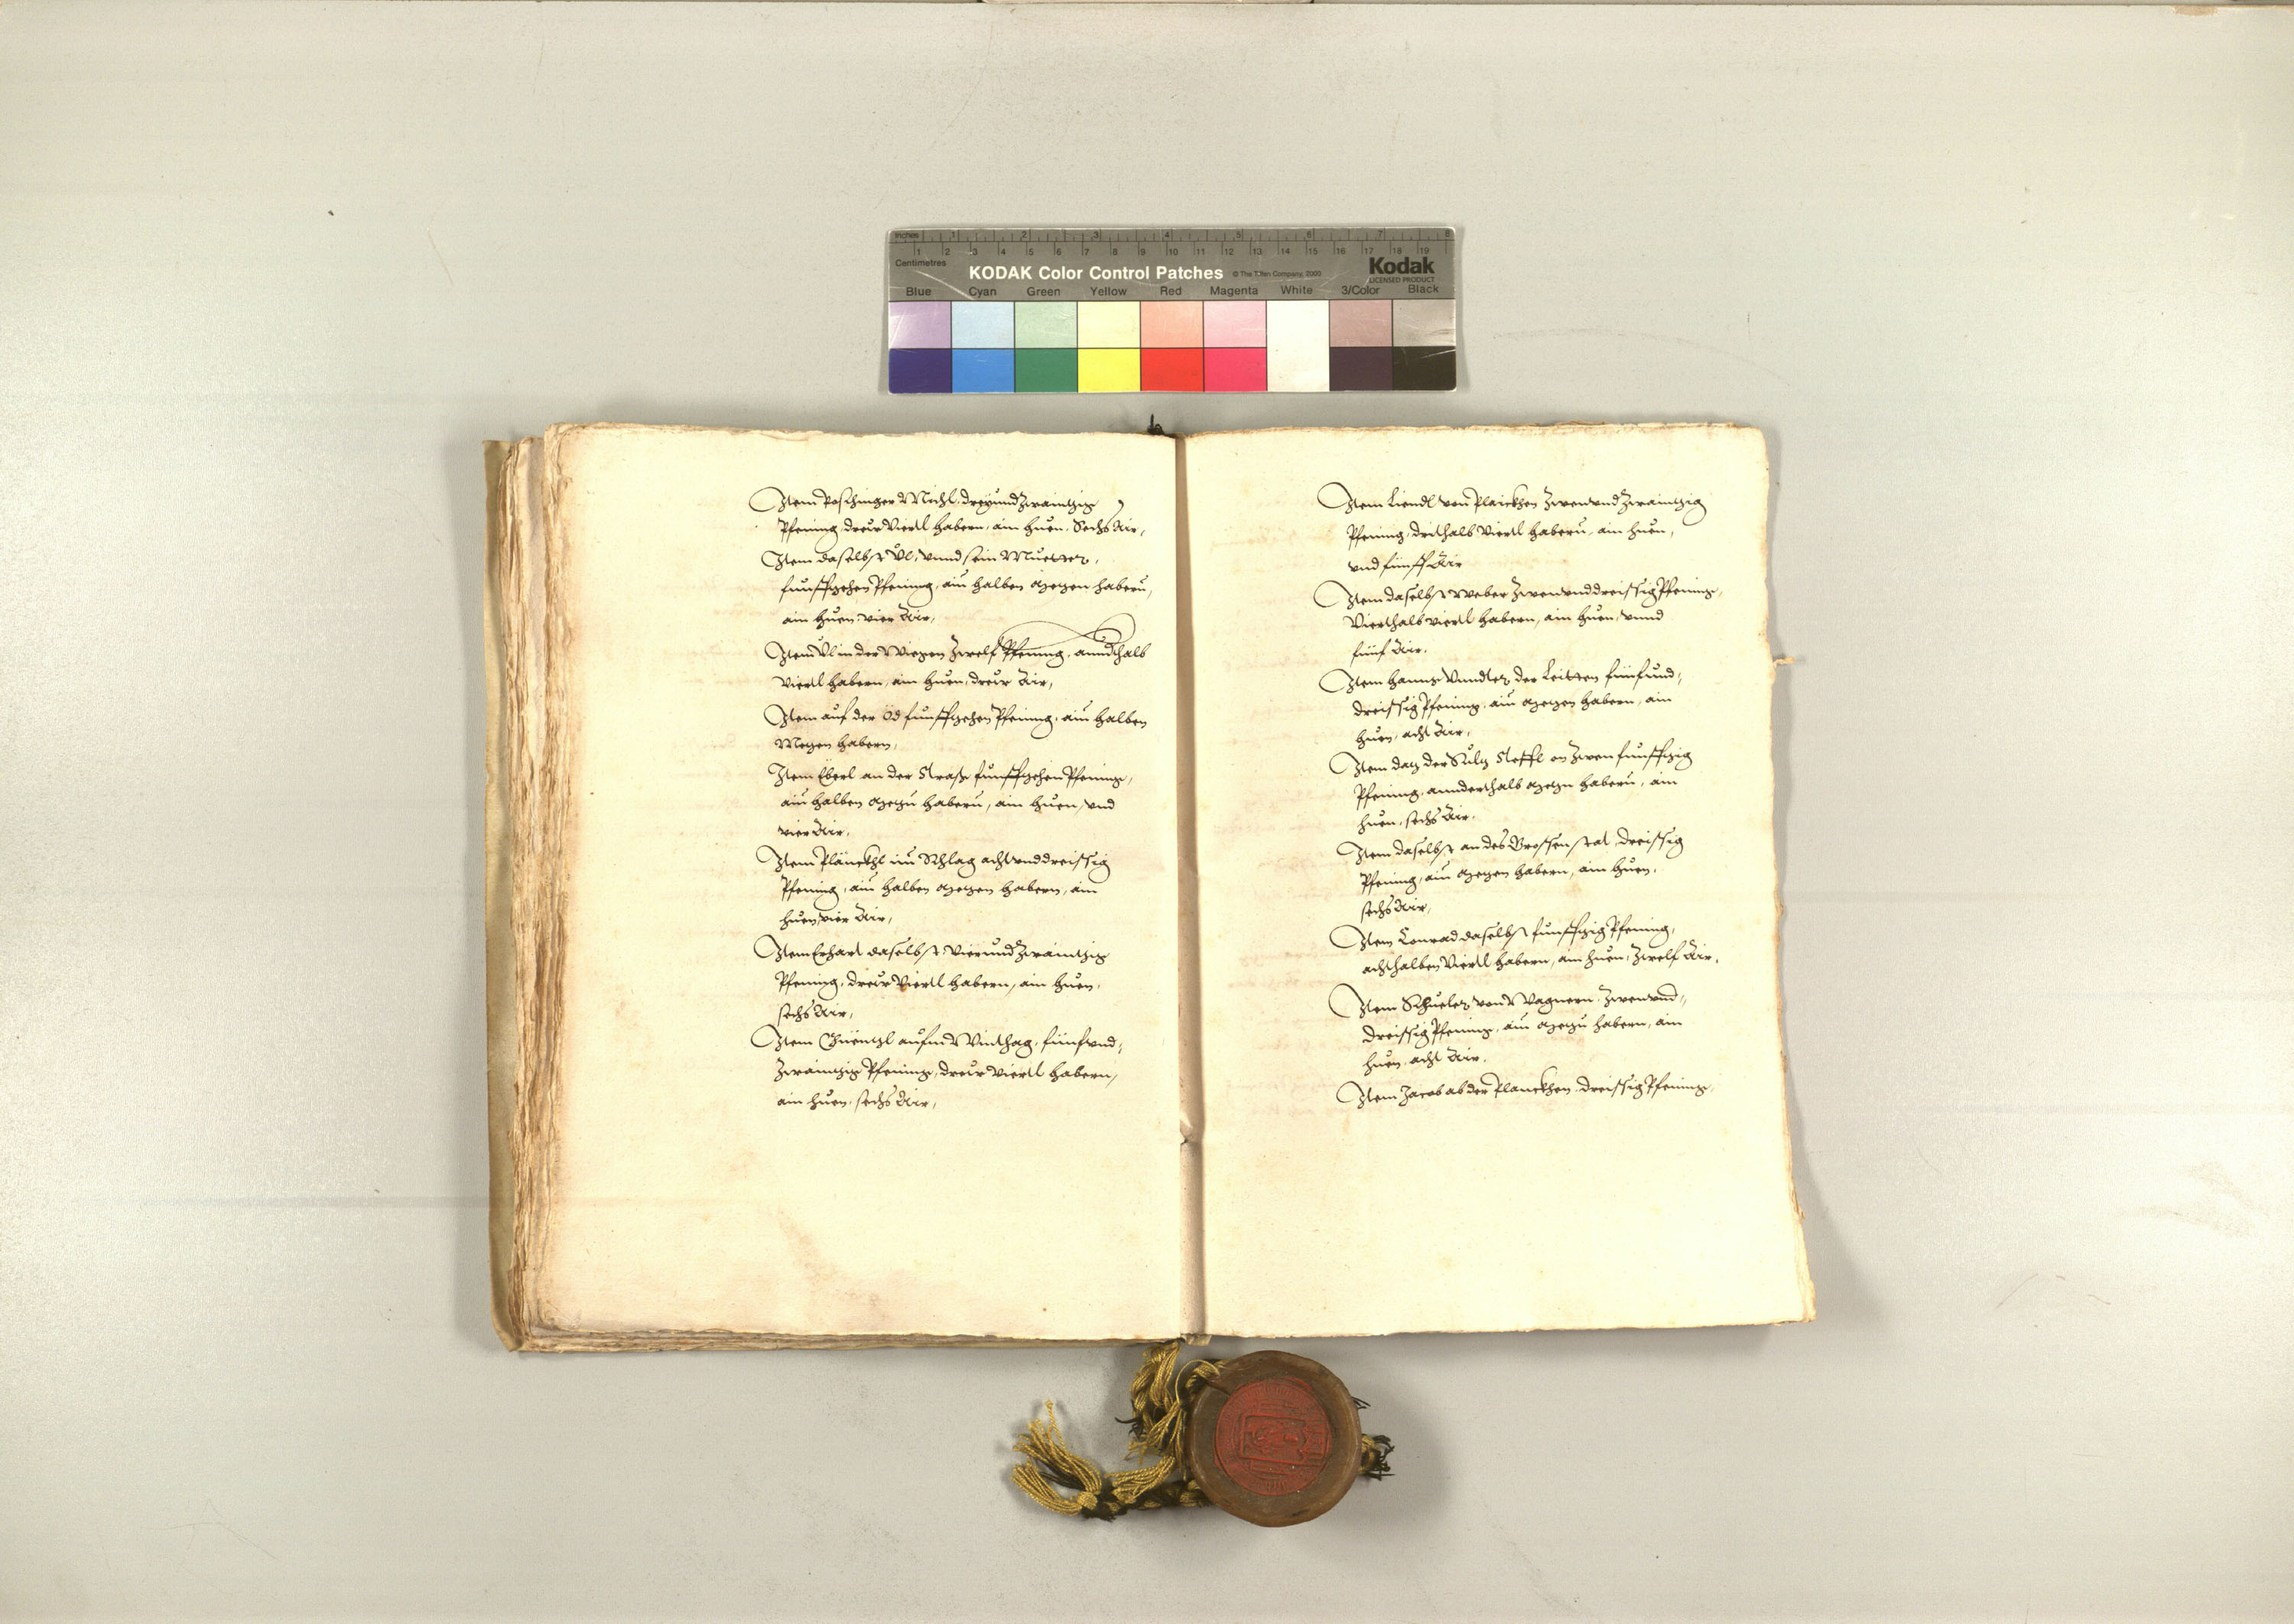 Inches 1 2 3 4 5 6 7 8
Centimetres 1 2 3 4 5 6 7 8 9 10 11 12 13 14 15 16 17 18 19
KODAK Color Control Patches © The Tiffen Company, 2000 Kodak
LICENSED PRODUCT
Blue Cyan Green Yellow Red Magenta White 3/Color Black
Item Poschinger Michl, dreyundzwaintzig
Pfening, dreir Viertl habern, ain huen, Sechs Air,
Item daselbst Ül, vnnd sein Muetter,
funffzehen Pfening, ain halben metzen habern,
ain huen, vier Air,
Item Ül in der Wiegen Zwelf Pfening, anndthalb
Viertl habern, ain huen, dreir Air,
Item auf der Öd funffzehen Pfening, ain halben
Metzen habern,
Item Eberl an der Strass funffzehen Pfening,
ain halben metzn habern, ain huen, vnd
vier Air,
Item Plänckhl im Schlag acht vnd dreissig
Pfening, ain halben metzen habern, ain
huen, vier Air,
Item Erhart daselbst Vierundzwaintzig
Pfening, dreir Viertl habern, ain huen,
sechs Air,
Item aufm Vinthag, fünfvnd=
zwaintzig Pfening, dreir Viertl habern,
ain huen, sechs Air,
Item Liendl von Planckhen Zwenvndzwaintzig
Pfening, drithalb Viertl habern, ain huen,
vnd fünff Air
Item daselbst Weber Zwenvnddreissig Pfening,
Vierthalb viertl habern, ain huen, vnnd
fünf Air.
Item Hanns Vndter der Leitten fünfund=
dreissig Pfening, ain metzen habern, ain
huen, acht Air,
Item datz der Sultz Steffl on Zwen funffzig
Pfening, annderthalb metzn habern, ain
huen, sechs Air.
Item daselbst an des stat, dreissig
Pfening, ain metzen habern, ain huen,
sechs Air,
Item Conrad daselbst funffzig Pfening,
achthalben Viertl habern, ain huen, Zwelf Air,
Item Schueler von Wagnern Zwenvnd=
dreissig Pfening, ain metzn habern, ain
huen, acht Air.
Item Jacob ab der Planckhen dreissig Pfening,